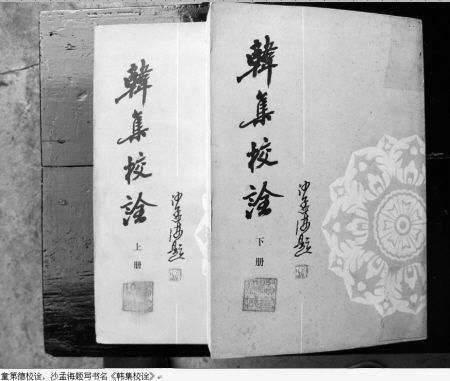 韓集校詮
沙孟海題
上册
韓集校詮
沙孟海題
下册
童第德校诠,沙孟海题写书名《韩集校诠》